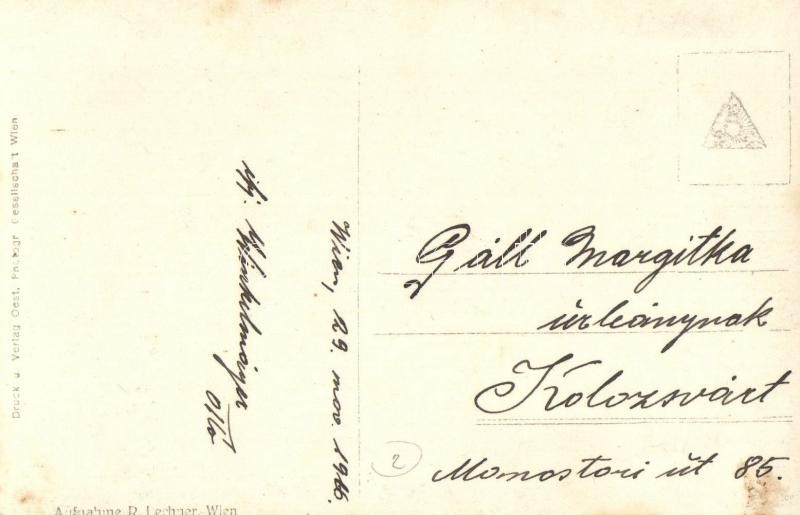 Druck u. Verlag Oest. Photogr. Gesellschaft Wien
ifj. Winkelmayer
Ottó
Wien, 29. nov. 1916.
Gáll Margitka
úrleánynak
Kolozsvárt
Monostori út 85.
2
Aufnahme R. Lechner-Wien